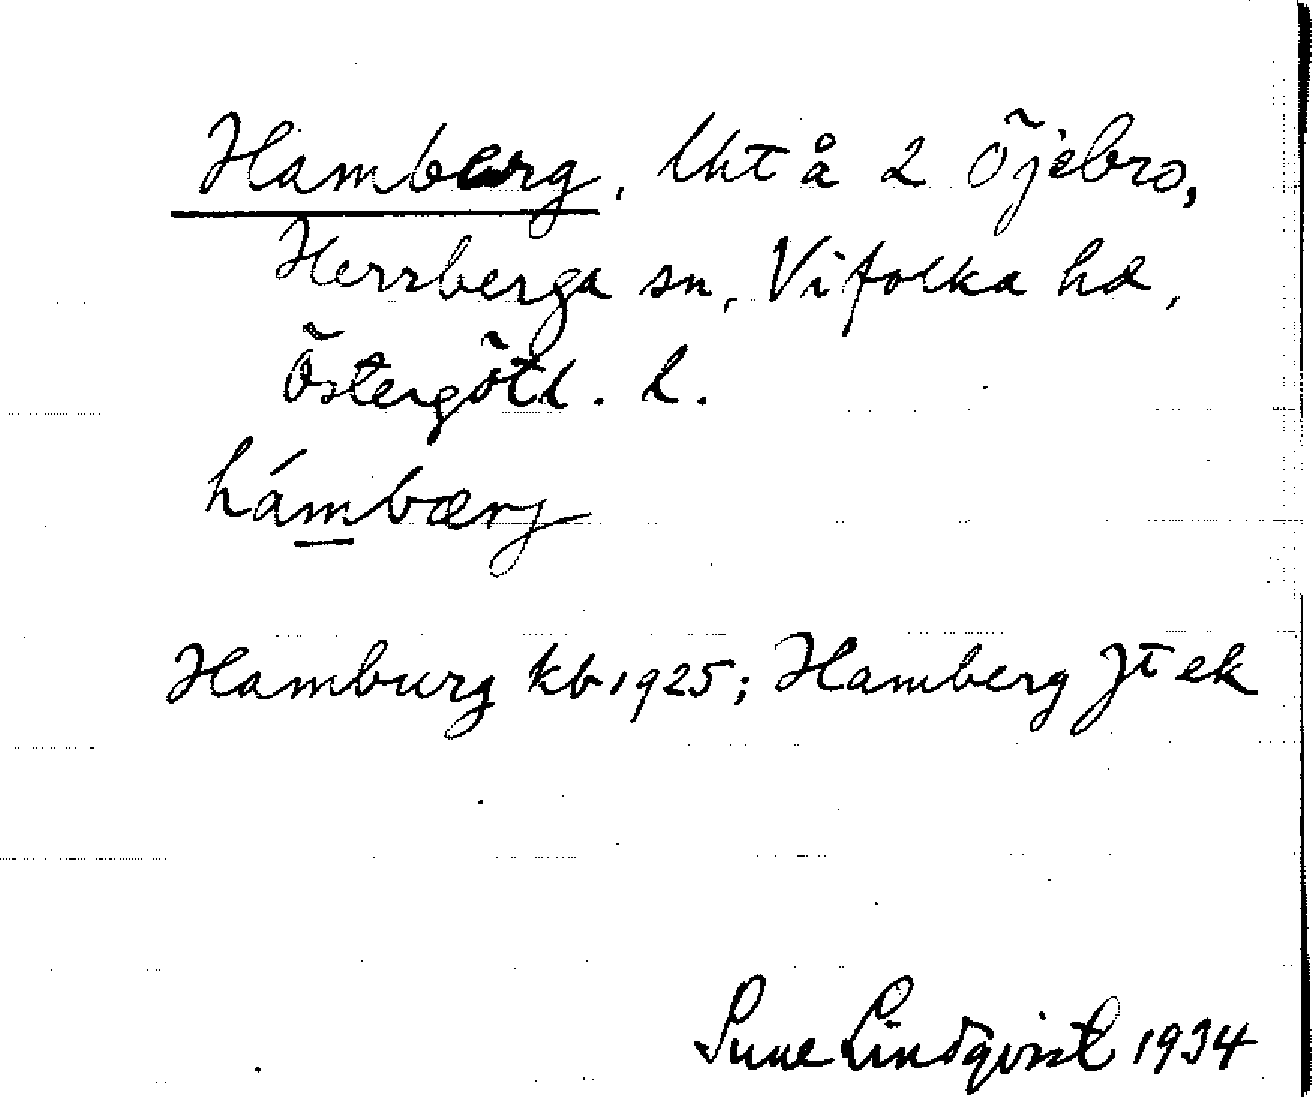 Hamberg, Uht å 2 Öjebro,
Herrberga sn, Vifolka hd,
Östergötl. l.
hámbærj
Hamburg kb 1925; Hamberg Jt ek
Sune Lindqvist 1934